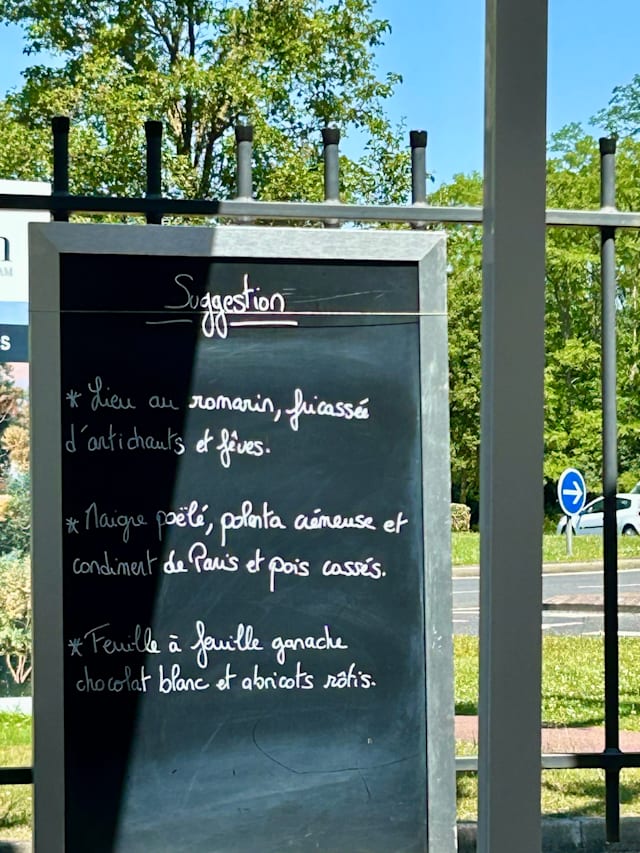 n
AM
s
Suggestion
* Lieu au romarin, fricassée
d'antichauts et fêves.
* Maigre poëlé, polenta crémeuse et
condiment de Paris et pois cassés.
* Feuille à feuille ganache
chocolat blanc et abricots rôtis.